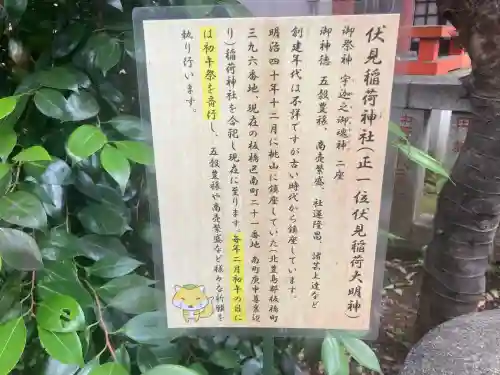 伏見稲荷神社（正一位伏見稲荷大明神）
御祭神　宇迦之御魂神　二座
御神徳　五穀豊穣、商売繁盛、社運隆昌、諸芸上達など
創建年代は不詳ですが古い時代から鎮座しています。
明治四十年十二月に桃山に鎮座していた（北豊島郡板橋
三九六番地、現在の板橋区南町二十一番地　南町庚申尊辺
り）稲荷神社を合祀し現在に至ります。毎年二月初午の日に
は初午祭を斎行し、五穀豊穣や商売繁盛など様々な祈願を
執り行います。